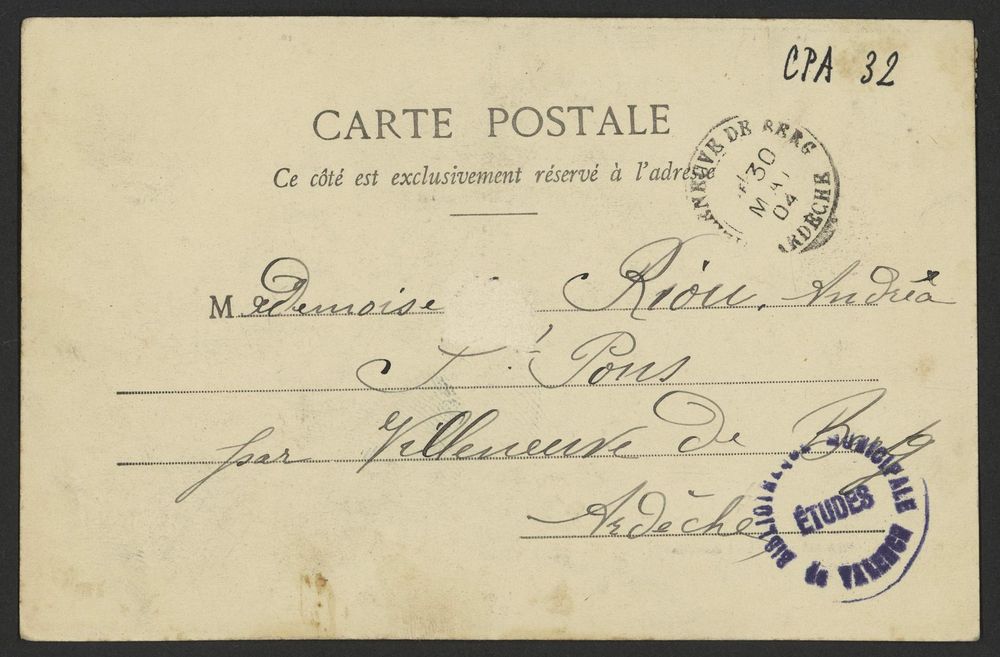 CPA 32
CARTE POSTALE
Ce côté est exclusivement réservé à l'adresse
NEUVE DE BERG
30
MAI
04
ARDÈCHE
Mademoise Riou, Andréa
St Pons
par Villeneuve de Berg
Ardèche
BIBLIOTHÈQUE MUNICIPALE
ÉTUDES